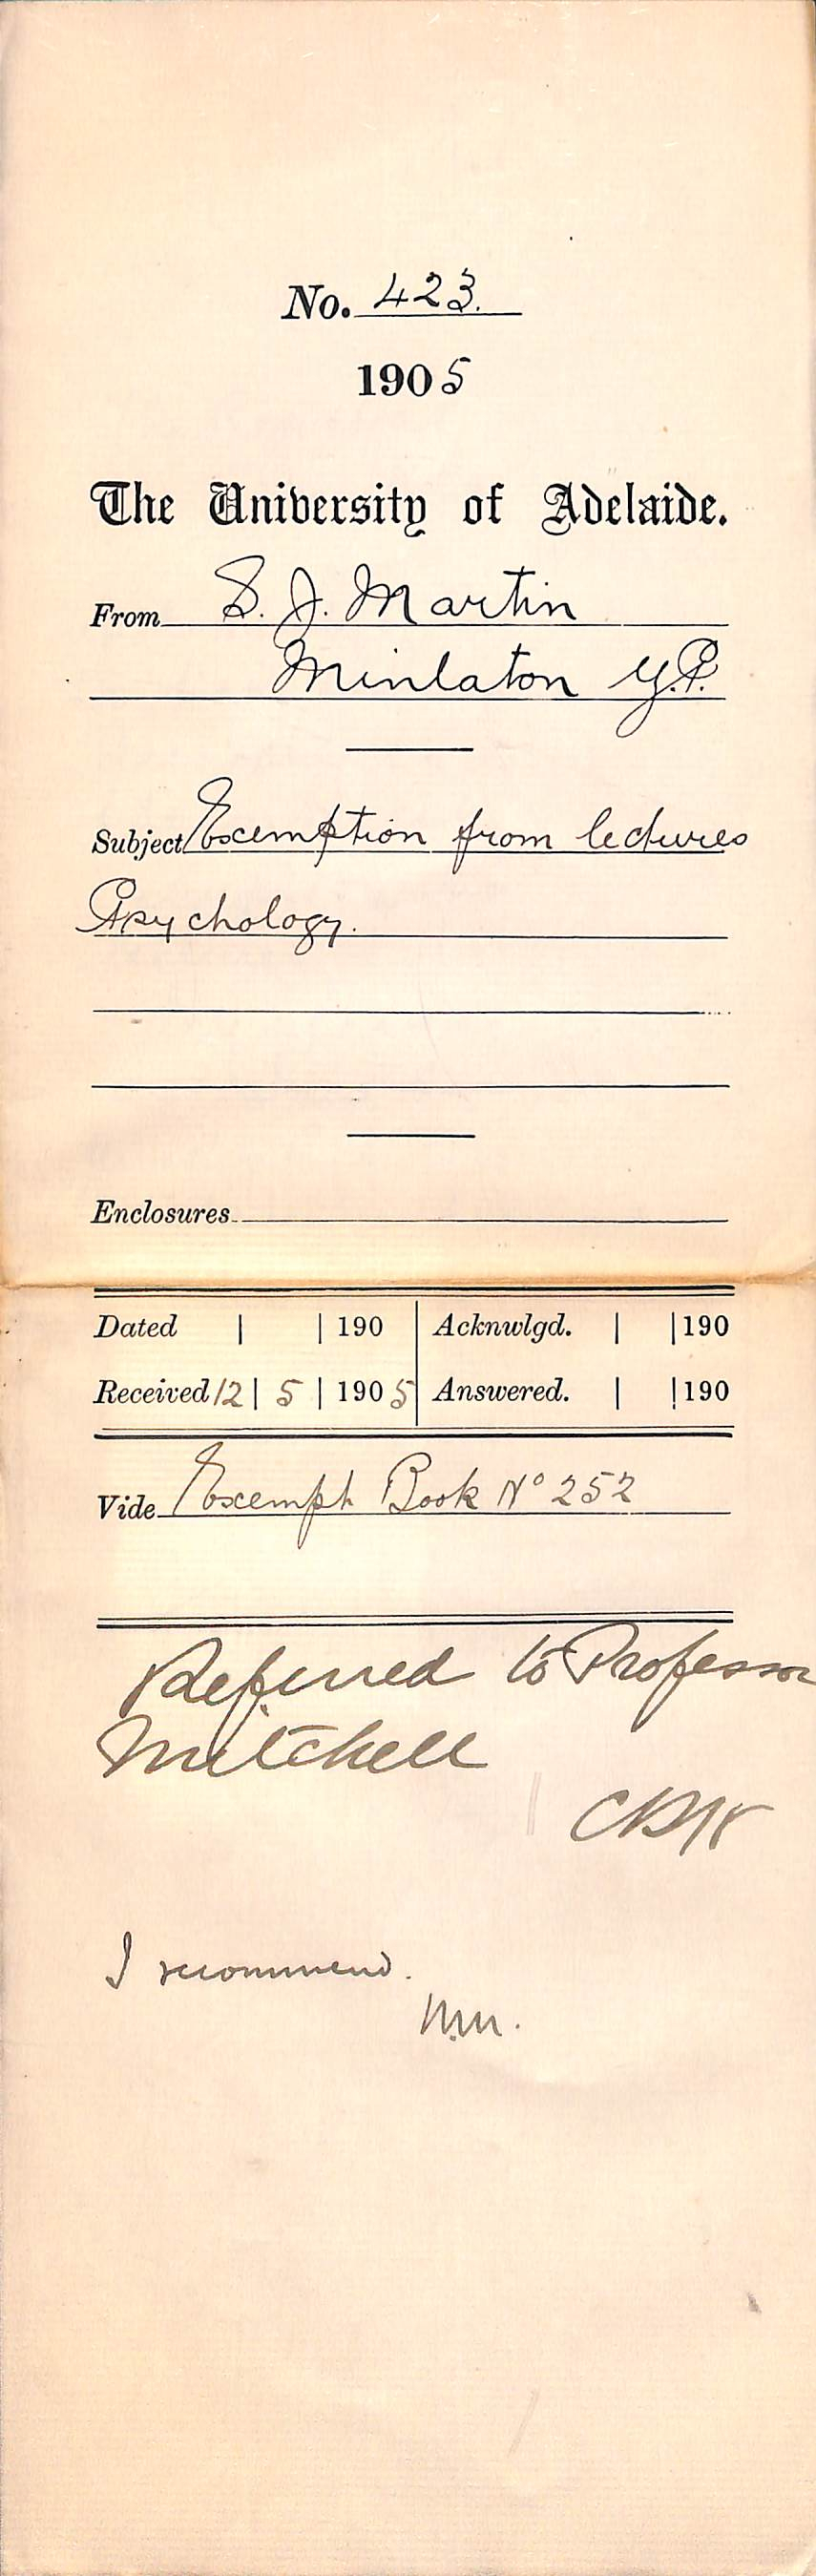 No. 423.
1905
The University of Adelaide.
From S. J. Martin
Minlaton Y.P.
Subject Exemption from lectures
Psychology.
Enclosures
Dated | | 190 | Acknwlgd. | | 190
Received 12 | 5 | 1905 | Answered. | | 190
Vide Exempt. Book No 252
Referred to Professor
Mitchell
I recommend.
W.M.